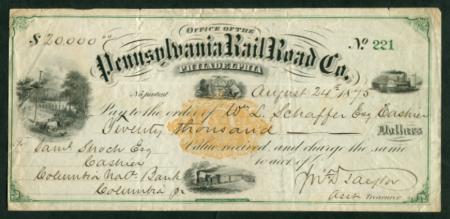 OFFICE OF THE
$20,000 00
Pennsylvania Rail Road Co.
No 221
PHILADELPHIA
August 24th 1875
Pay to the order of Wm L. Schaffer Esq Cashier
Twenty thousand Dollars
To Saml Shoch Esq Value received and charge the same
Cashier to acct of
Columbia Natl Bank
Columbia Pa